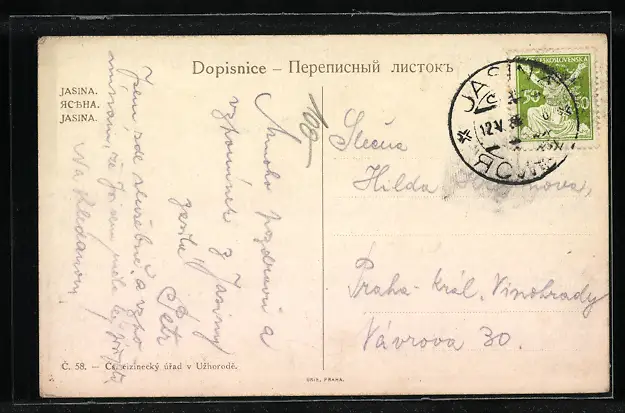 Dopisnice – Переписный листокъ
JASINA.
ЯСѢНА.
JASINA.
100
Mnoho pozdravů a
vzpomínek z Jasiny
zasílá
Petr
Jsem zde služebně a vzpo
mínám, že jsem
Na shledanou
Slečna
Hilda
Praha-Král. Vinohrady
Vávrova 30.
ČESKOSLOVENSKÁ
50 50
JASIN
12.V.
Č. 58. — Cizinecký úřad v Užhorodě.
UNIE, PRAHA.